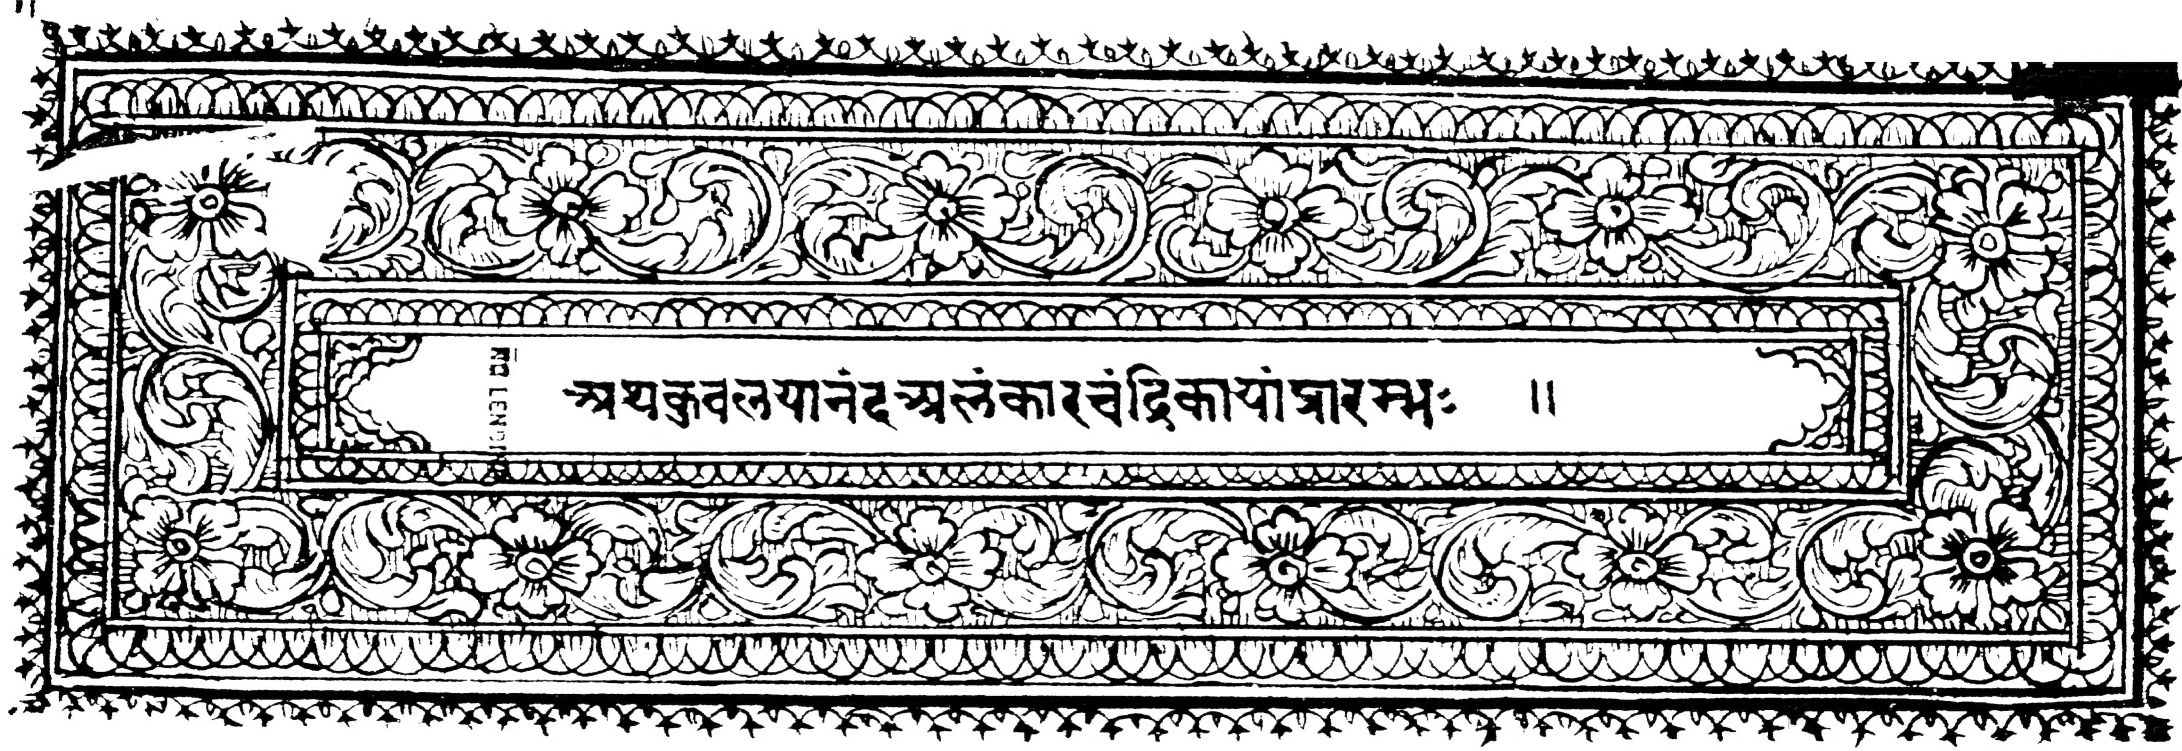 ॥
अथकुवलयानंदअलंकारचंद्रिकायांप्रारम्भः ॥